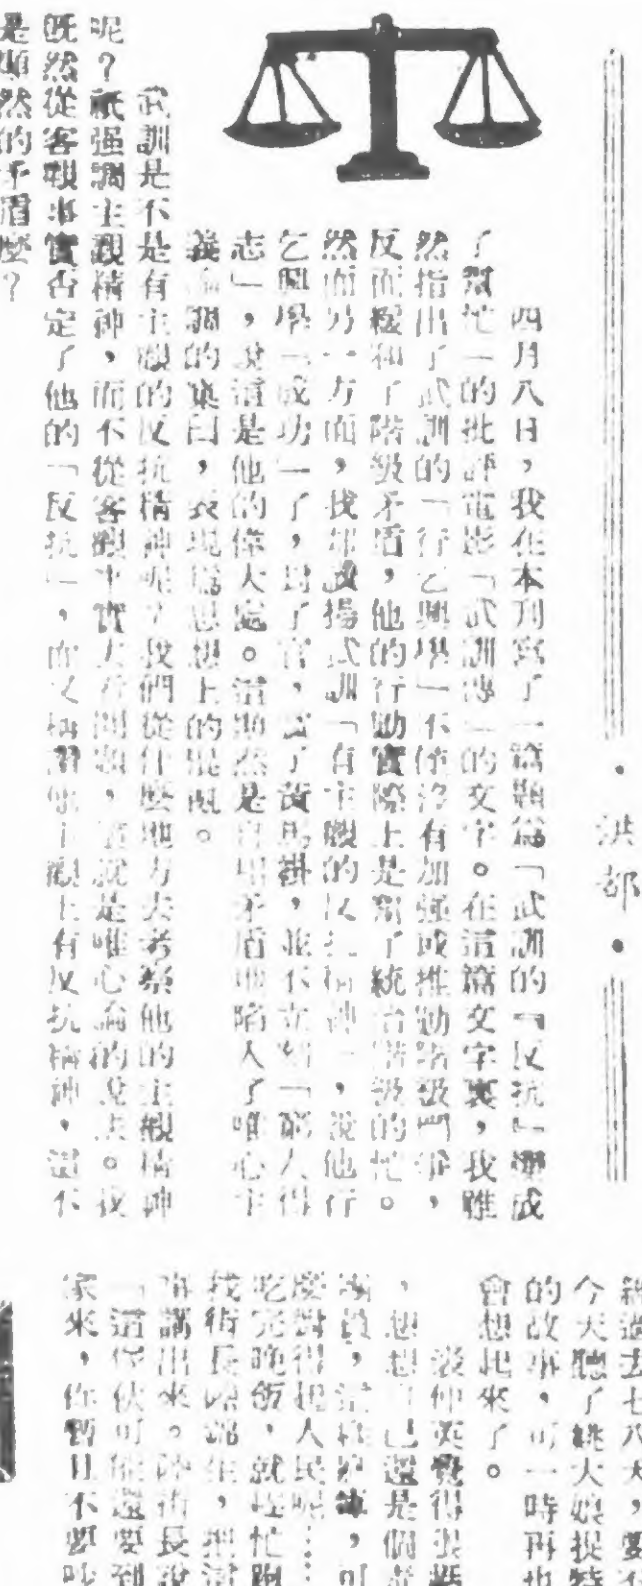 ·洪都·
四月八日，我在本刊寫了一篇題爲「武訓的『反抗』變成
了幫忙」的批評電影「武訓傳」的文字。在這篇文字裏，我雖
然指出了武訓的「行乞興學」不僅沒有加强或推動階級鬥爭，
反而緩和了階級矛盾，他的行動實際上是幫了統治階級的忙。
然而另一方面，我却讚揚武訓「有主觀的反抗精神」，說他行
乞興學「成功」了，見了官，賞了黃馬掛，並不立刻「窮人得
志」，說這是他的偉大處。這顯然是自相矛盾地陷入了唯心主
義論調的窠臼，表現爲思想上的混亂。
武訓是不是有主觀的反抗精神呢？我們從什麼地方去考察他的主觀精神
呢？祇强調主觀精神，而不從客觀事實去看問題，這就是唯心論的說法。我
既然從客觀事實否定了他的「反抗」，而又稱讚他主觀上有反抗精神，還不
是顯然的矛盾麼？
過去七八天，要不
今天聽了姚大娘捉特
的故事，可一時再也
會想起來了。
裴仲英覺得很
，想想自己還是個
吃完晚飯，就趕忙跑
找街長
講出來。 街長說
「這傢伙可能還要到
家來，你暫且不要